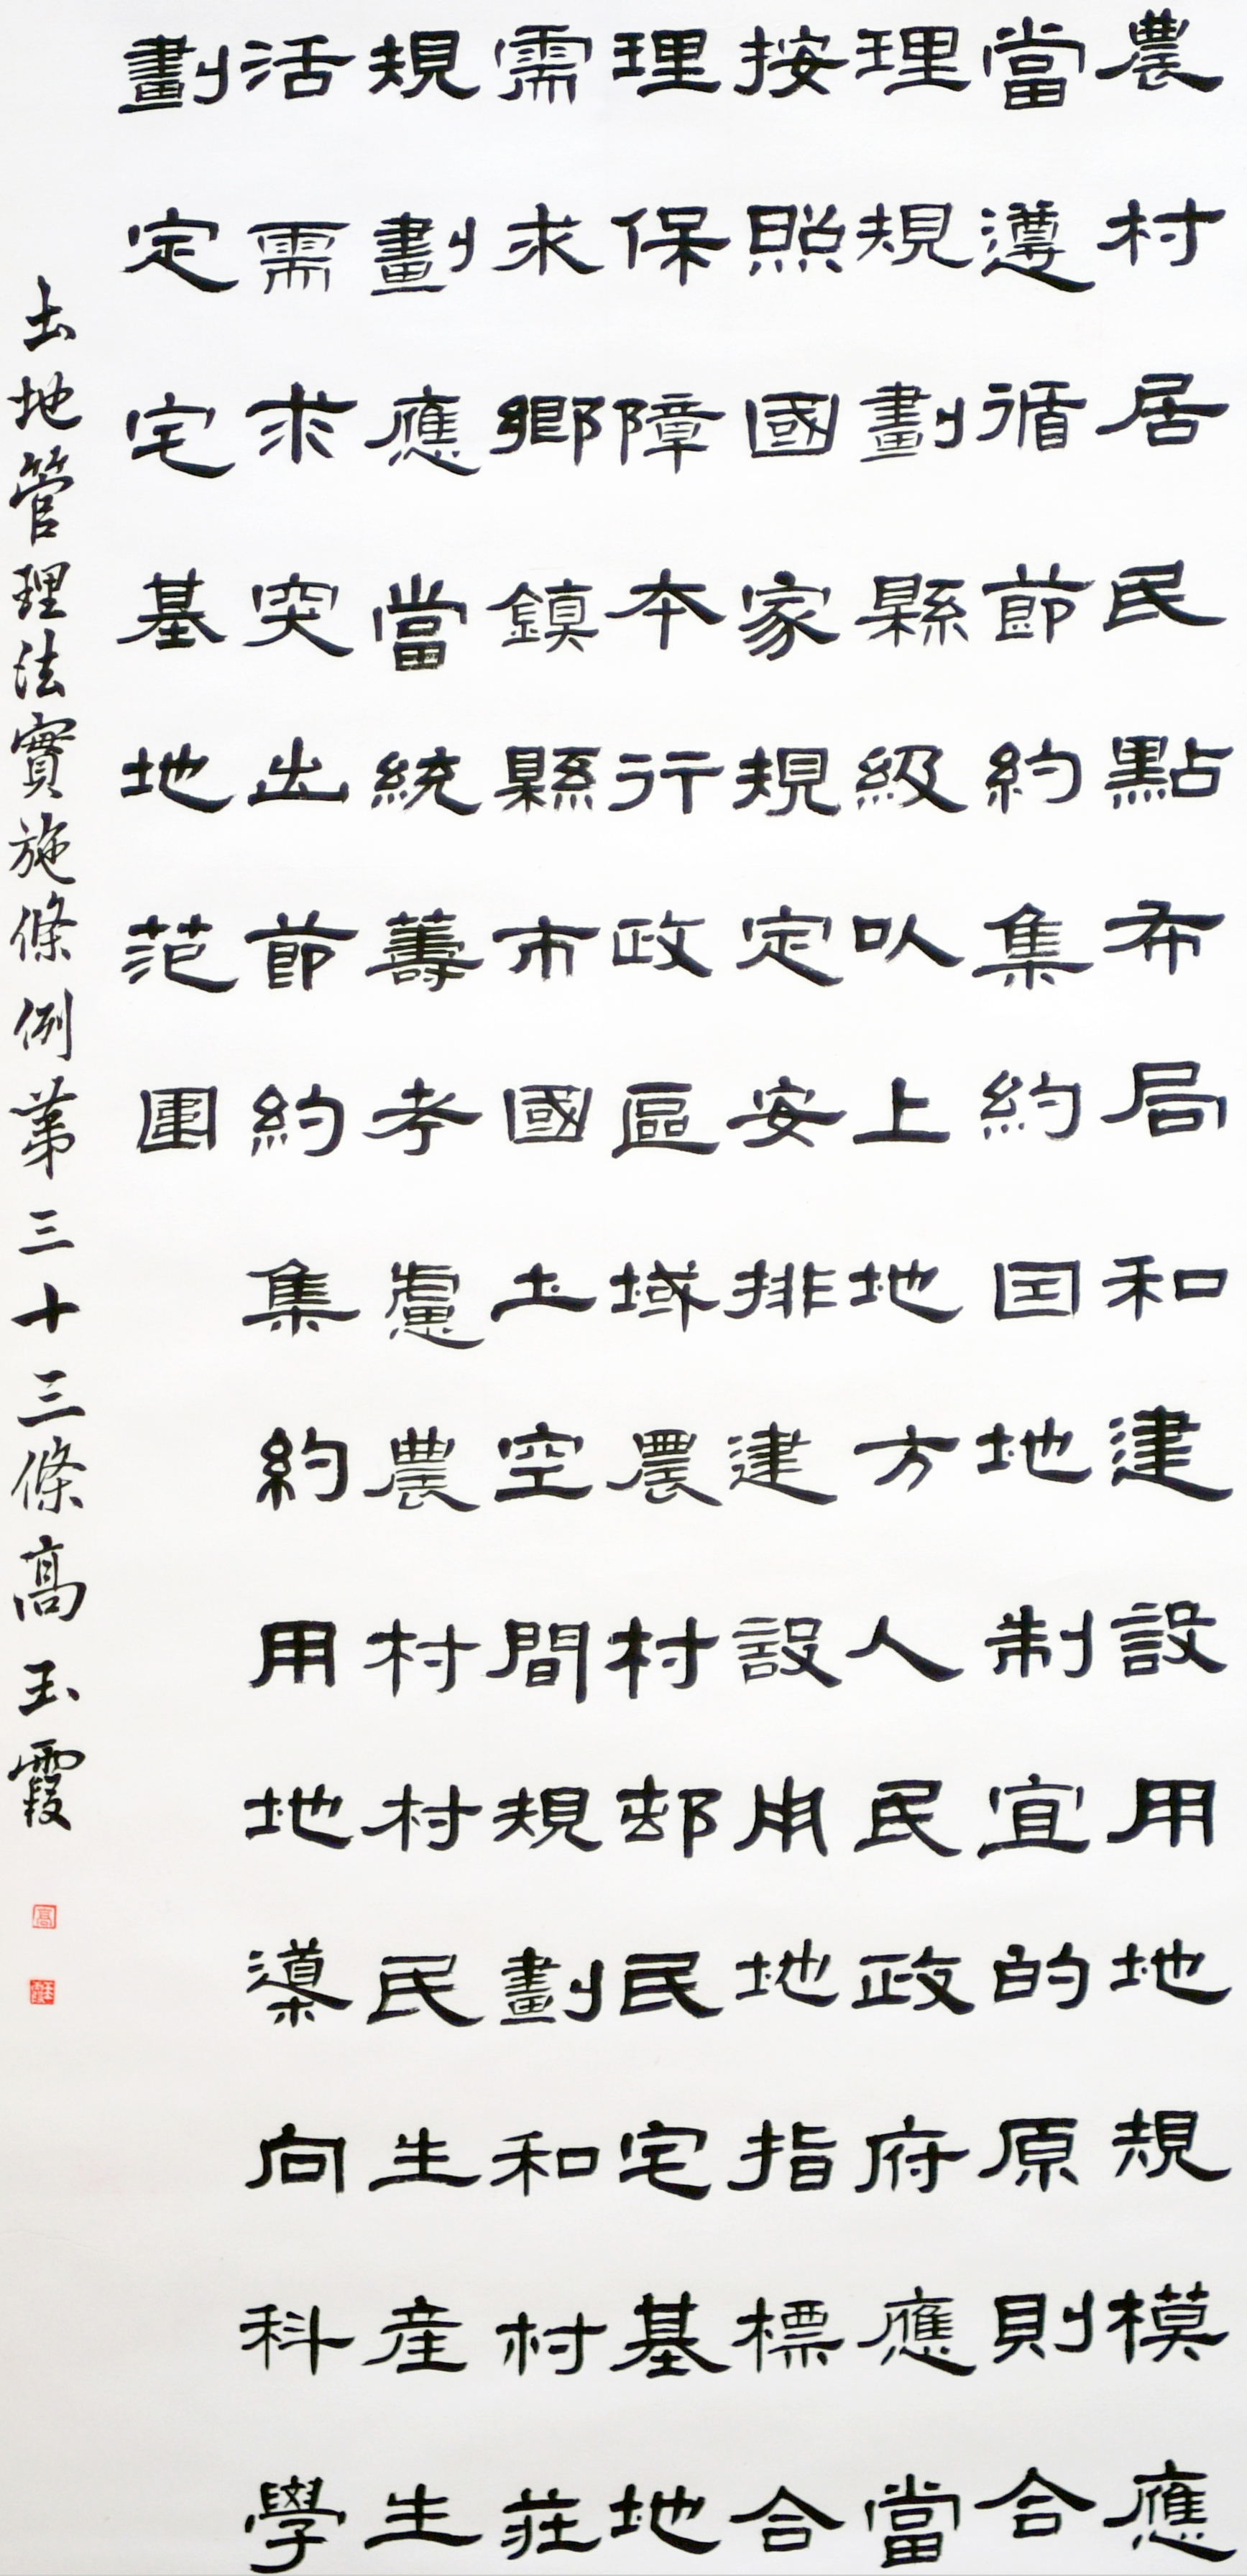 農村居民點布局和建設用地規模應
當遵循節約集約因地制宜的原則合
理規劃縣級以上地方人民政府應當
按照國家規定安排建設用地指標合
理保障本行政區域農村邨民宅基地
需求鄉鎮縣市國土空間規劃和村莊
規劃應當統籌考慮農村村民生産生
活需求突出節約集約用地導向科學
劃定宅基地范圍
土地管理法實施條例第三十三條高玉霞
高
玉霞